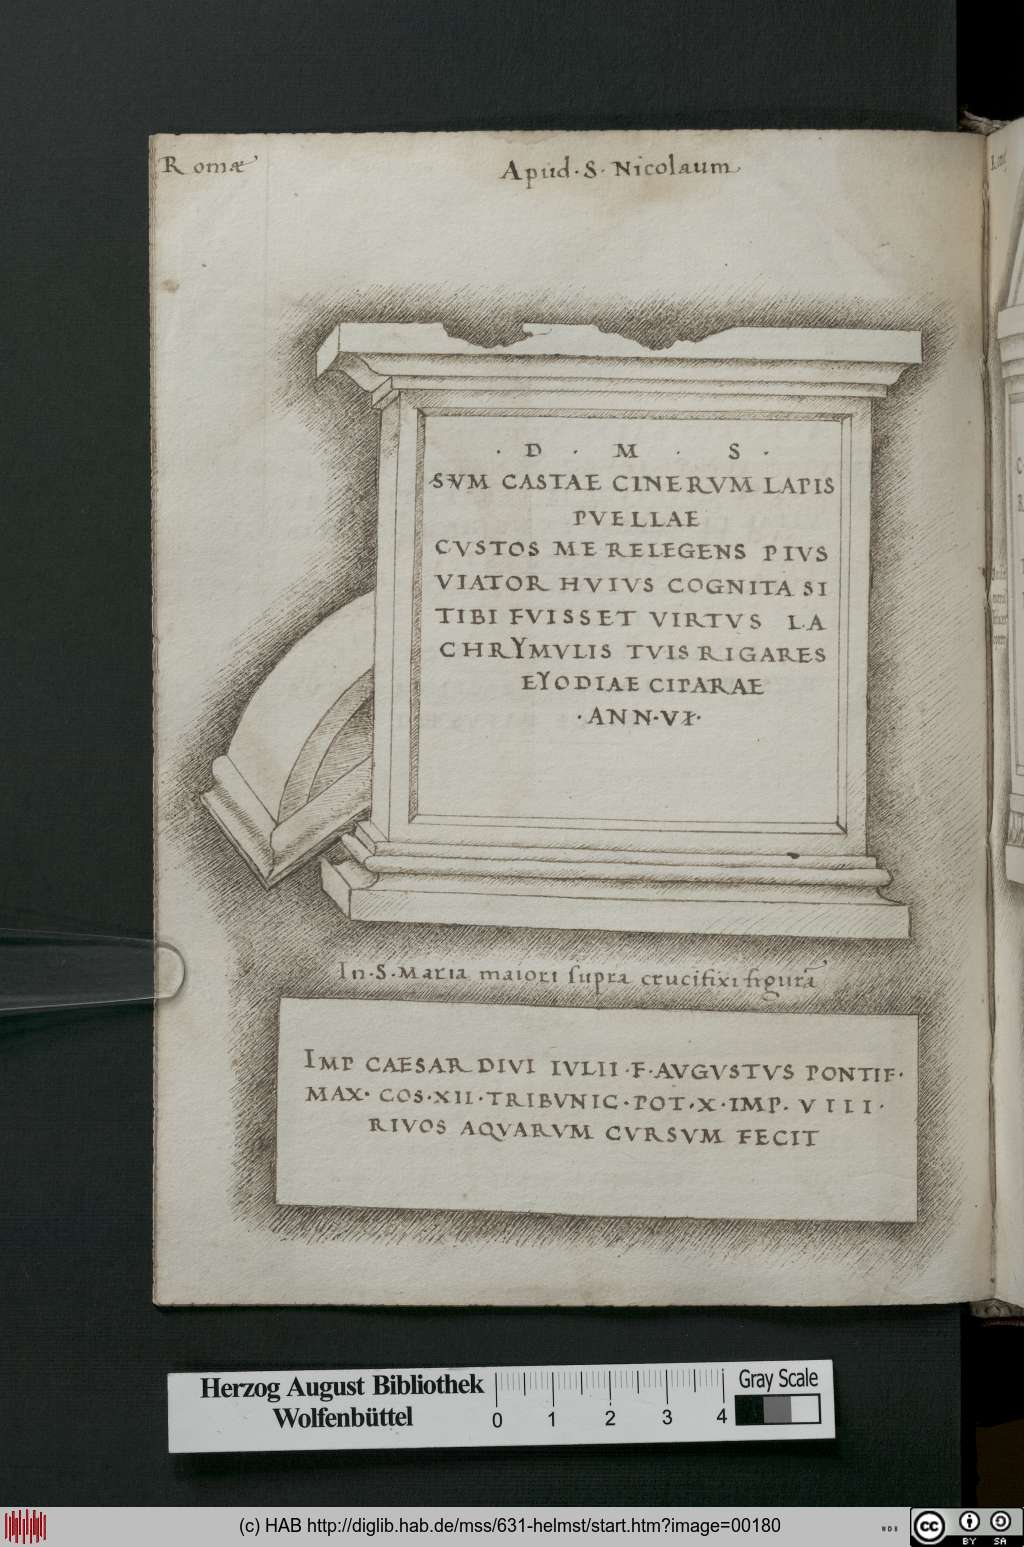 Romæ
Apud · S · Nicolaum
· D · M · S ·
SVM CASTAE CINERVM LAPIS
PVELLAE
CVSTOS ME RELEGENS PIVS
VIATOR HVIVS COGNITA SI
TIBI FVISSET VIRTVS LA
CHRYMVLIS TVIS RIGARES
EYODIAE CIPARAE
· ANN · VI ·
In · S · Maria maiori supra crucifixi figurā
IMP CAESAR DIVI IVLII · F · AVGVSTVS PONTIF ·
MAX · COS · XII · TRIBVNIC · POT · X · IMP · VIII ·
RIVOS AQVARVM CVRSVM FECIT
Herzog August Bibliothek
Wolfenbüttel
0 1 2 3 4
Gray Scale
(c) HAB http://diglib.hab.de/mss/631-helmst/start.htm?image=00180
WDB
cc BY SA